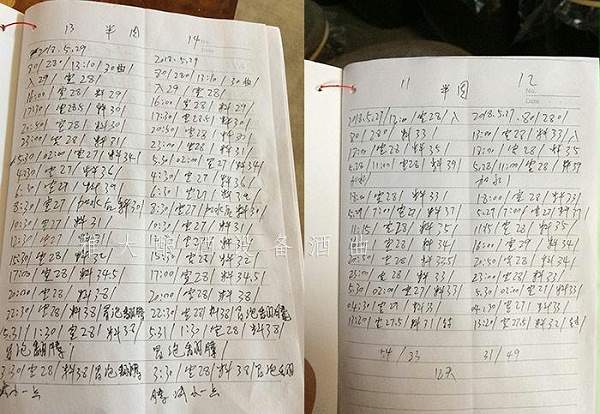 13 半肉 14
2018.5.29
80/28/13:10/30曲/
入29/室28/
16:00/室28/料29/
17:30/28.5/料30/
20:50/室28/料30/
23:00/室28/料31/
5.30/02:00/室27/料34/
4:30/室27/料36/
6:30/室27/料39/
8:30/室27/加水后料30/
10:30/室27/料31/
15:30/室28/料32/
17:00/室28/料34.5/
20:00/室28/料38/
22:30/室28/料38/冒泡翻腾
5.31/1:30/室28/料38/
冒泡翻腾
3:30/室28/料38/冒泡翻腾
减小一点
2018.5.29
80/280/13:10/30曲/
入29/室28/
16:00/室28/料29/
17:30/室28.5/料30/
20:50/室28/料30/
23:00/室28/料31/
5.30/02:00/室27/料34/
4:30/室27/料36/
6:30/室27/料39/
8:30/室27/加水后料30/
10:30/室27/料31/
15:30/室28/料32/
17:00/室28/料34.5/
20:00/室28/料38/
22:30/室28/料38/冒泡翻腾
5.31/1:30/室28/料38/
冒泡翻腾
3:30/室28/料38/冒泡翻
腾减小一点
11 半肉 12
No.
Date
2018.5.27/13:00/室28/入
80/280/料33/
18:00/室28/料35/
5.28/11:00/室28/料39/
加水/
18:00/室28/料33/
5.29/7:00/室27/料37/
11:15/室28/料35/
16:00/室29/料34/
20:50/室28/料33.5/
23:00/室28/料33/
5.30/02:00/室27/料33/
04:30/室27/料33/
13:20/室27.5/料31/结
54/23
2018.5.27/80/280/
13:00/室28/料33/入
18:00/室28/料35
5.28/11:00/室28/料39
加水/
18:00/室28/料33/
5.29/7:00/室27/料37/
11:15/室28/料35
16:00/室29/料34/
20:50/室28/料34/
23:00/室28/料33/
5.30/02:00/室27/料33/
04:30/室27/料33/
13:20/室27.5/料32/结/
31/49
雅大酿酒设备酒曲